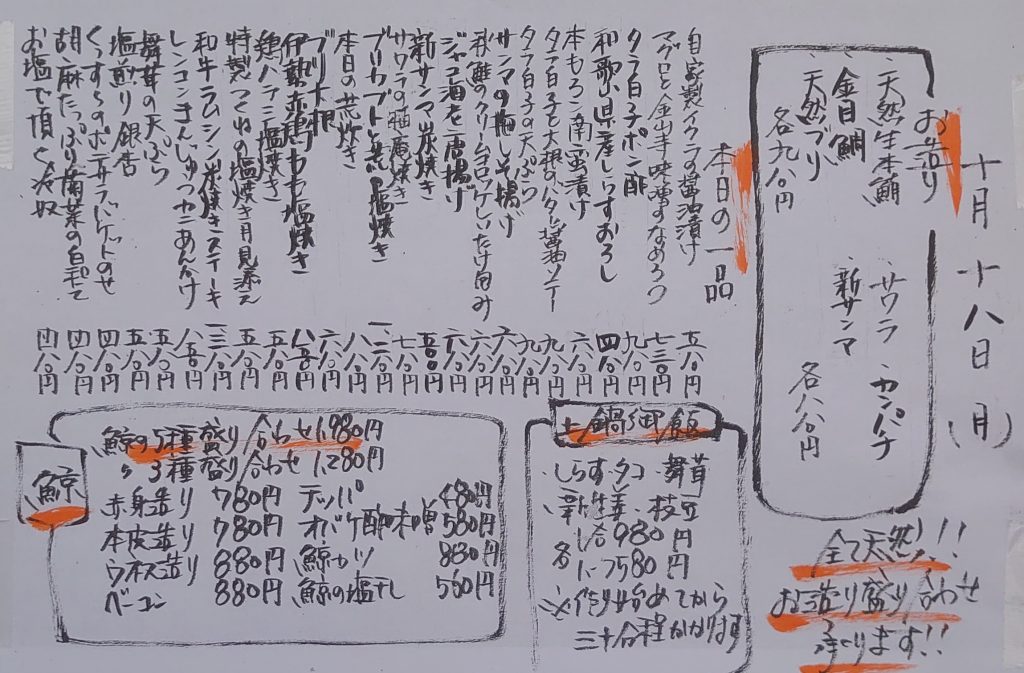 十月十八日(月)
お造り
・天然生本鮪
・金目鯛
・天然ブリ
各九八〇円
・サワラ ・カンパチ
・新サンマ
各八八〇円
全て天然!!
お造り盛り合わせ
承ります!!
本日の一品
自家製イクラの醤油漬け 五八〇円
マグロと金山寺味噌のなめろう 七三〇円
タラ白子ポン酢 九八〇円
和歌山県産しらすおろし 四八〇円
本もろこ南蛮漬け 六八〇円
タラ白子の天ぷら 九八〇円
タラ白子と大根のバター醤油ソテー 九八〇円
サンマの梅しそ揚げ 六八〇円
秋鮭のクリームコロッケしいたけ包み 六八〇円
ジャコ海老唐揚げ 六八〇円
新サンマ炭焼き 八五〇円
サワラの幽庵焼き 七八〇円
ブリカブト炭塩焼き 一、二八〇円
本日の荒炊き 八八〇円
ブリ大根 六八〇円
伊勢赤鶏もも塩焼き 八八〇円
鶏ハラミ塩焼き 五八〇円
特製つくねの塩焼き月見添え 五八〇円
和牛ラムシン炭焼きステーキ 一、三八〇円
レンコンまんじゅうカニあんかけ 八五〇円
舞茸の天ぷら 五八〇円
塩煎り銀杏 五八〇円
くんすらのポテサラバケットのせ 四八〇円
胡麻たっぷり菊菜の白和え 四八〇円
お塩で頂く冷奴 四八〇円
土鍋御飯
・しらす・タコ・舞茸
・新生姜・枝豆
各 一合 980円
二合 1580円
※炊き始めてから
三十分程かかります
鯨
鯨の5種盛り合わせ 1,980円
〃 3種盛り合わせ 1,280円
赤身造り 780円
本皮造り 780円
ウネス造り 880円
ベーコン 880円
テッパ 480円
オバケ酢味噌 580円
鯨カツ 880円
鯨の塩干し 560円